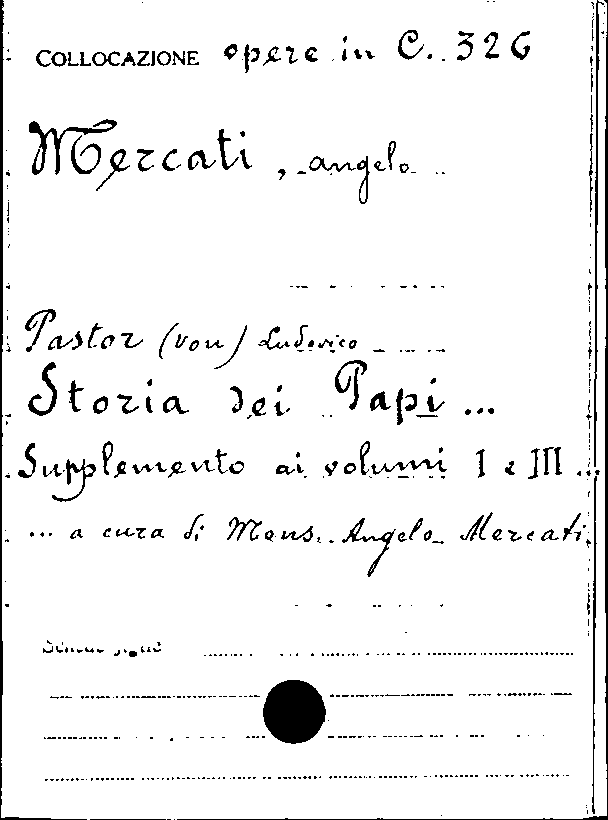 COLLOCAZIONE opere in C. 326
Mercati, Angelo
Pastor (von) Ludovico
Storia dei Papi ...
Supplemento ai volumi I e III ...
... a cura di Mons. Angelo Mercati.